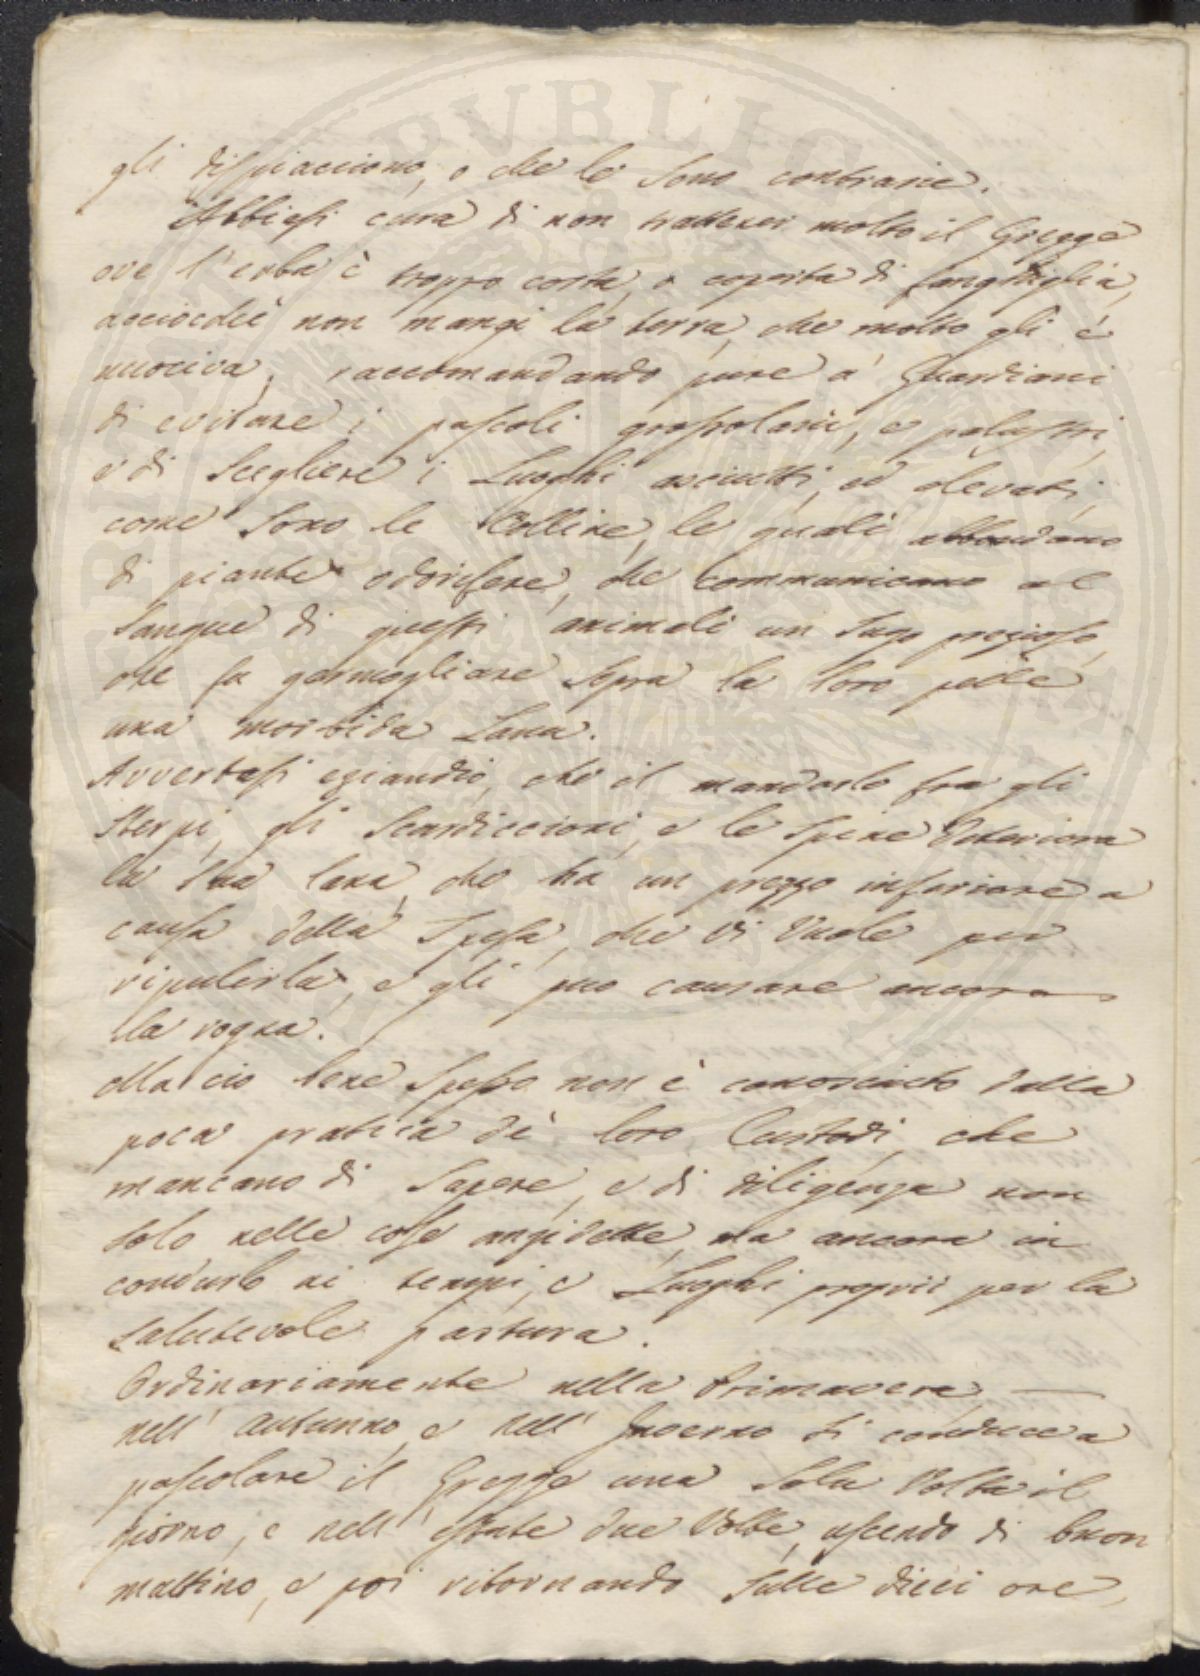 gli dispiacciono, o che le sono contrarie.
Abbiasi cura di non trattener molto il Gregge
ove l'erba è troppo corta, o coperta di fanghiglia,
acciocchè non mangi la terra, che molto gli è
nuociva, raccomandando pure a' Guardiani
di evitare i pascoli grossolani, e palustri,
e di scegliere i Luoghi asciutti, ed elevati,
come sono le Colline, le quali abbondano
di piante odorifere, che communicano al
sangue di questi animali un sugo prezioso,
che fa germogliare sopra la loro pelle
una morbida Lana.
Avvertasi eziandio, che il mandarlo fra gli
sterpi, gli scardiccioni, e le spine deteriora
la sua lana, che ha un prezzo inferiore a
causa della spesa, che vi vuole per
ripulirla, e gli può causare ancora
la rogna.
Ma ciò bene spesso non è conosciuto dalla
poca pratica de' loro Custodi, che
mancano di sapere, e di diligenza non
solo nelle cose anzidette, ma ancora in
condurlo ni tempi, e Luoghi proprii per la
salutevole pastura.
Ordinariamente nella Primavera
nell' Autunno, e nell' Inverno si conduce a
pascolare il Gregge una sola volta il
giorno, e nell' estate due volte, uscendo di buon
mattino, e poi ritornando sulle dieci ore,
PVBLIC